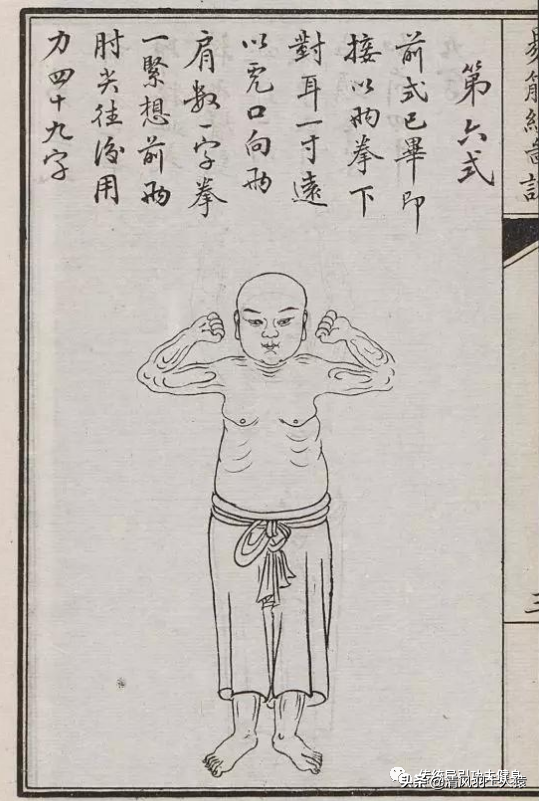 易筋經圖說
第六式
前式已畢即
接以兩拳下
對耳一寸遠
以虎口向兩
肩數一字拳
一緊想前兩
肘尖往後用
力四十九字
三